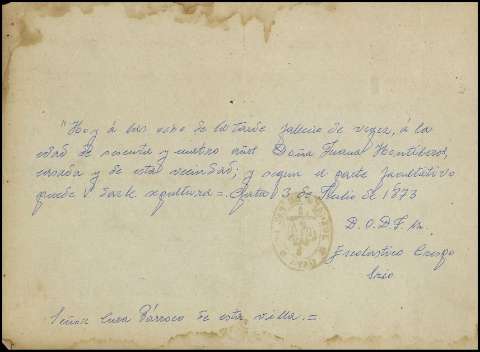 "Hoy á las ocho de la tarde falleció de vegez, á la
edad de sesenta y cuatro años Doña Juana Hontiberos,
casada y de esta vecindad; y segun el parte facultativo
puede V darle sepultura =. 3 de Julio de 1873
D. O. D. F. M.
Escolastico Crespo
Srio
Señor Cura Párroco de esta villa. =